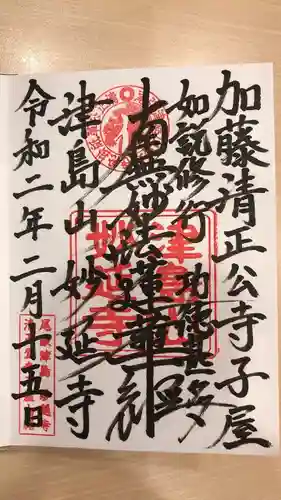 加藤清正公寺子屋
如説修行 功徳甚多
南無妙法蓮華経
津島山 妙延寺
令和二年二月十五日